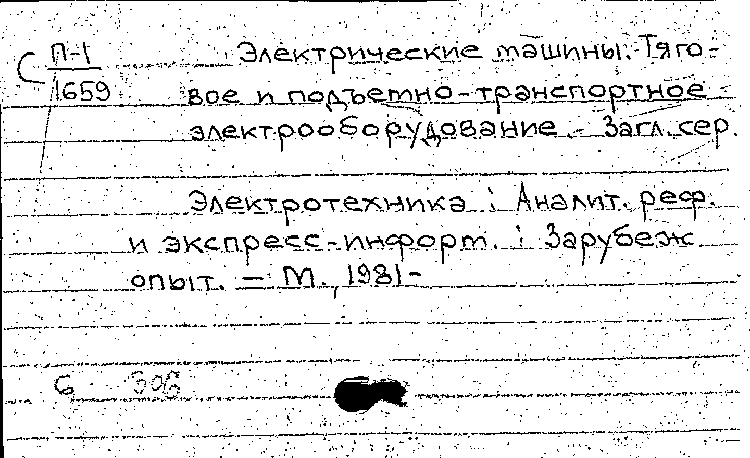 С П-1 Электрические машины. Тяго-
1659 вое и подъемно-транспортное
электрооборудование. - Загл. сер.
Электротехника : Аналит. реф.
и экспресс-информ. : Зарубеж.
опыт. — М., 1981-
6